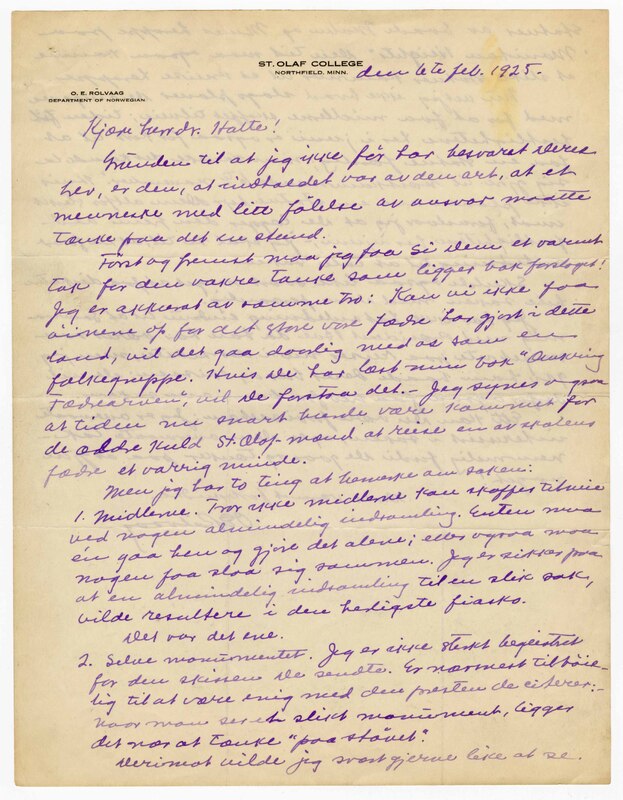 ST. OLAF COLLEGE
NORTHFIELD, MINN.
den 6te feb. 1925.
O. E. ROLVAAG
DEPARTMENT OF NORWEGIAN
Kjære herr dr. Halle!
Grunden til at jeg ikke för har besvaret Deres
brev, er den, at indholdet var av den art, at et
menneske med litt følelse av ansvar maatte
tænke paa det en stund.
Först og fremst maa jeg faa si Dem et varmt
tak for den vakre tanke som ligger bak forslaget!
Jeg er akkurat av samme tro: Kan vi ikke faa
öinene op for det store vore fædre har gjort i dette
land, vil det gaa daarlig med os som en
folkegruppe. Hvis De har læst min bok "Omkring
Fædrearven", vil De forstaa det. - Jeg synes ogsaa
at tiden nu snart burde være kommet for
de ældre kuld St. Olaf-mænd at reise en av skolens
fædre et værrig minde.
Men jeg har to ting at bemerke om saken:
1. Midlerne. Tror ikke midlerne kan skaffes tilveie
ved nogen almindelig indsamling. Enten maa
én gaa hen og gjöre det alene; eller ogsaa maa
nogen faa slaa sig sammen. Jeg er sikker paa
at en almindelig indsamling til en slik sak,
vilde resultere i den hedigste fiasko.
Det var det ene.
2. Selve monumentet. Jeg er ikke sterkt begeistret
for den skissen De sendte. Er nærmest tilböie-
lig til at være enig med den presten De citerer: -
naar man ser et slikt monument, ligger
det nær at tænke "paa stövet".
Derimot vilde jeg svært gjerne like at se